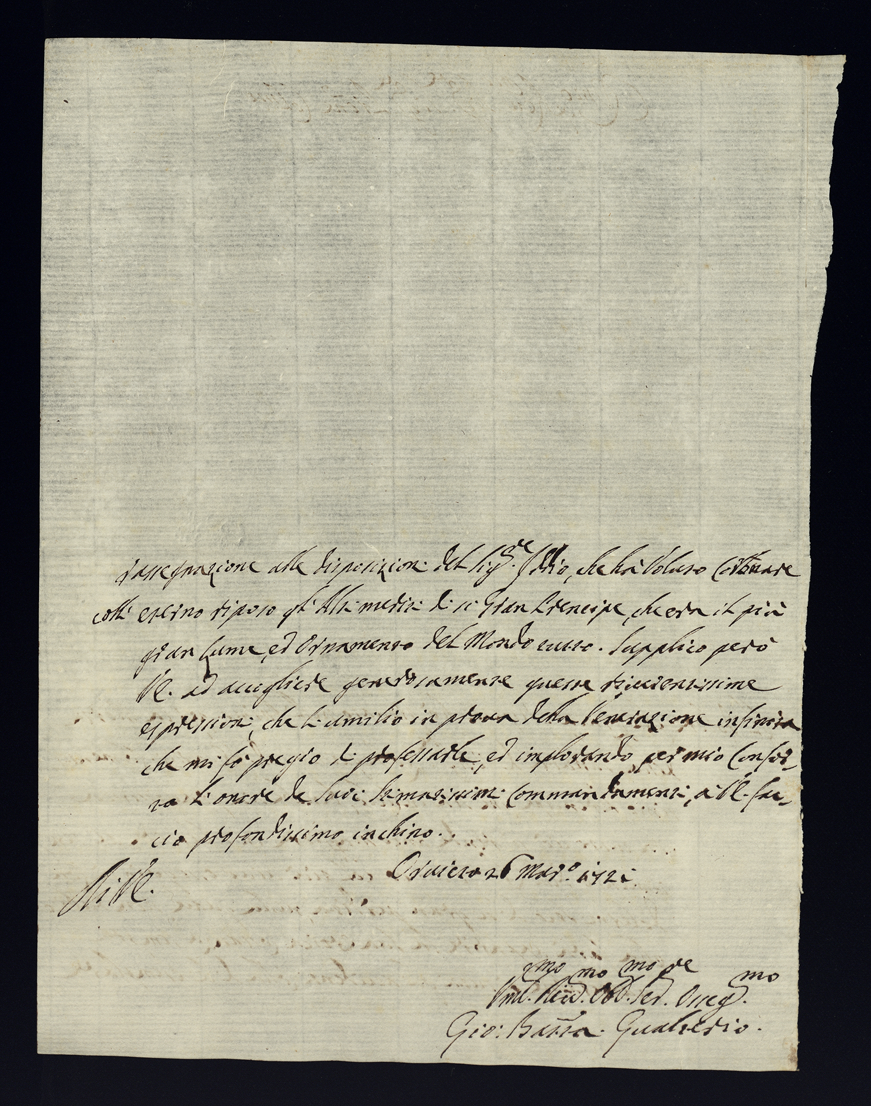 rassegnazione alle disposizioni del Sig.re Iddio, che hà voluto Coronare
coll' eterno riposo gl' Alti meriti di sì gran Prencipe, che era il più
gran lume, ed ornamento del Mondo tutto. Supplico però
V.E. ad accogliere generosamente queste riverentissime
espressioni, che l'umilio in prova della venerazione infinita
che mi fò pregio di professarle, ed implorando per mio Confor-
to l'onore de suoi stimatissimi Commandamenti, a V.E. fac-
cio profondissimo inchino.
Orvieto 26 Mar.o 1721
Di V.E.
Uml.mo Dev.mo Obb.mo Ser.re Osseq.mo
Gio: Batta Gualterio.